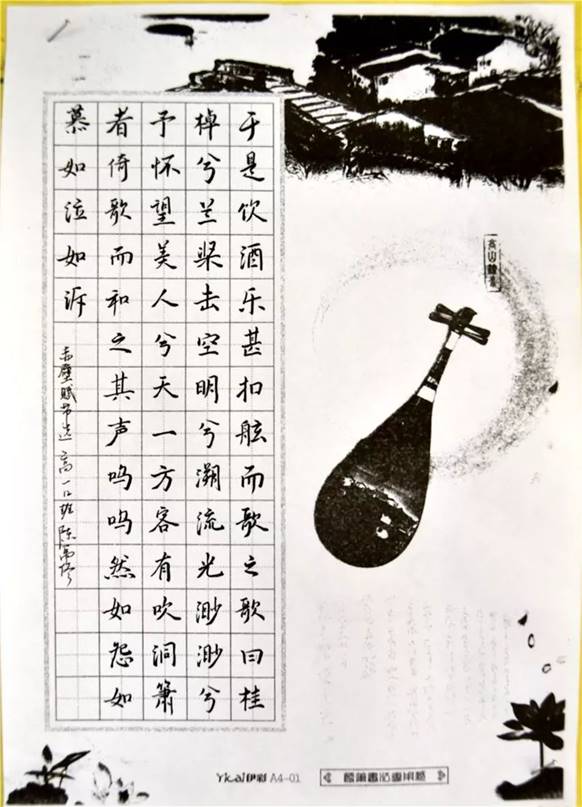 于是饮酒乐甚扣舷而歌之歌曰桂
棹兮兰桨击空明兮溯流光渺渺兮
予怀望美人兮天一方客有吹洞箫
者倚歌而和之其声呜呜然如怨如
慕如泣如诉
赤壁赋节选 高一12班 陈
高山
Yical伊彩 A4-01
硬笔书法专用纸